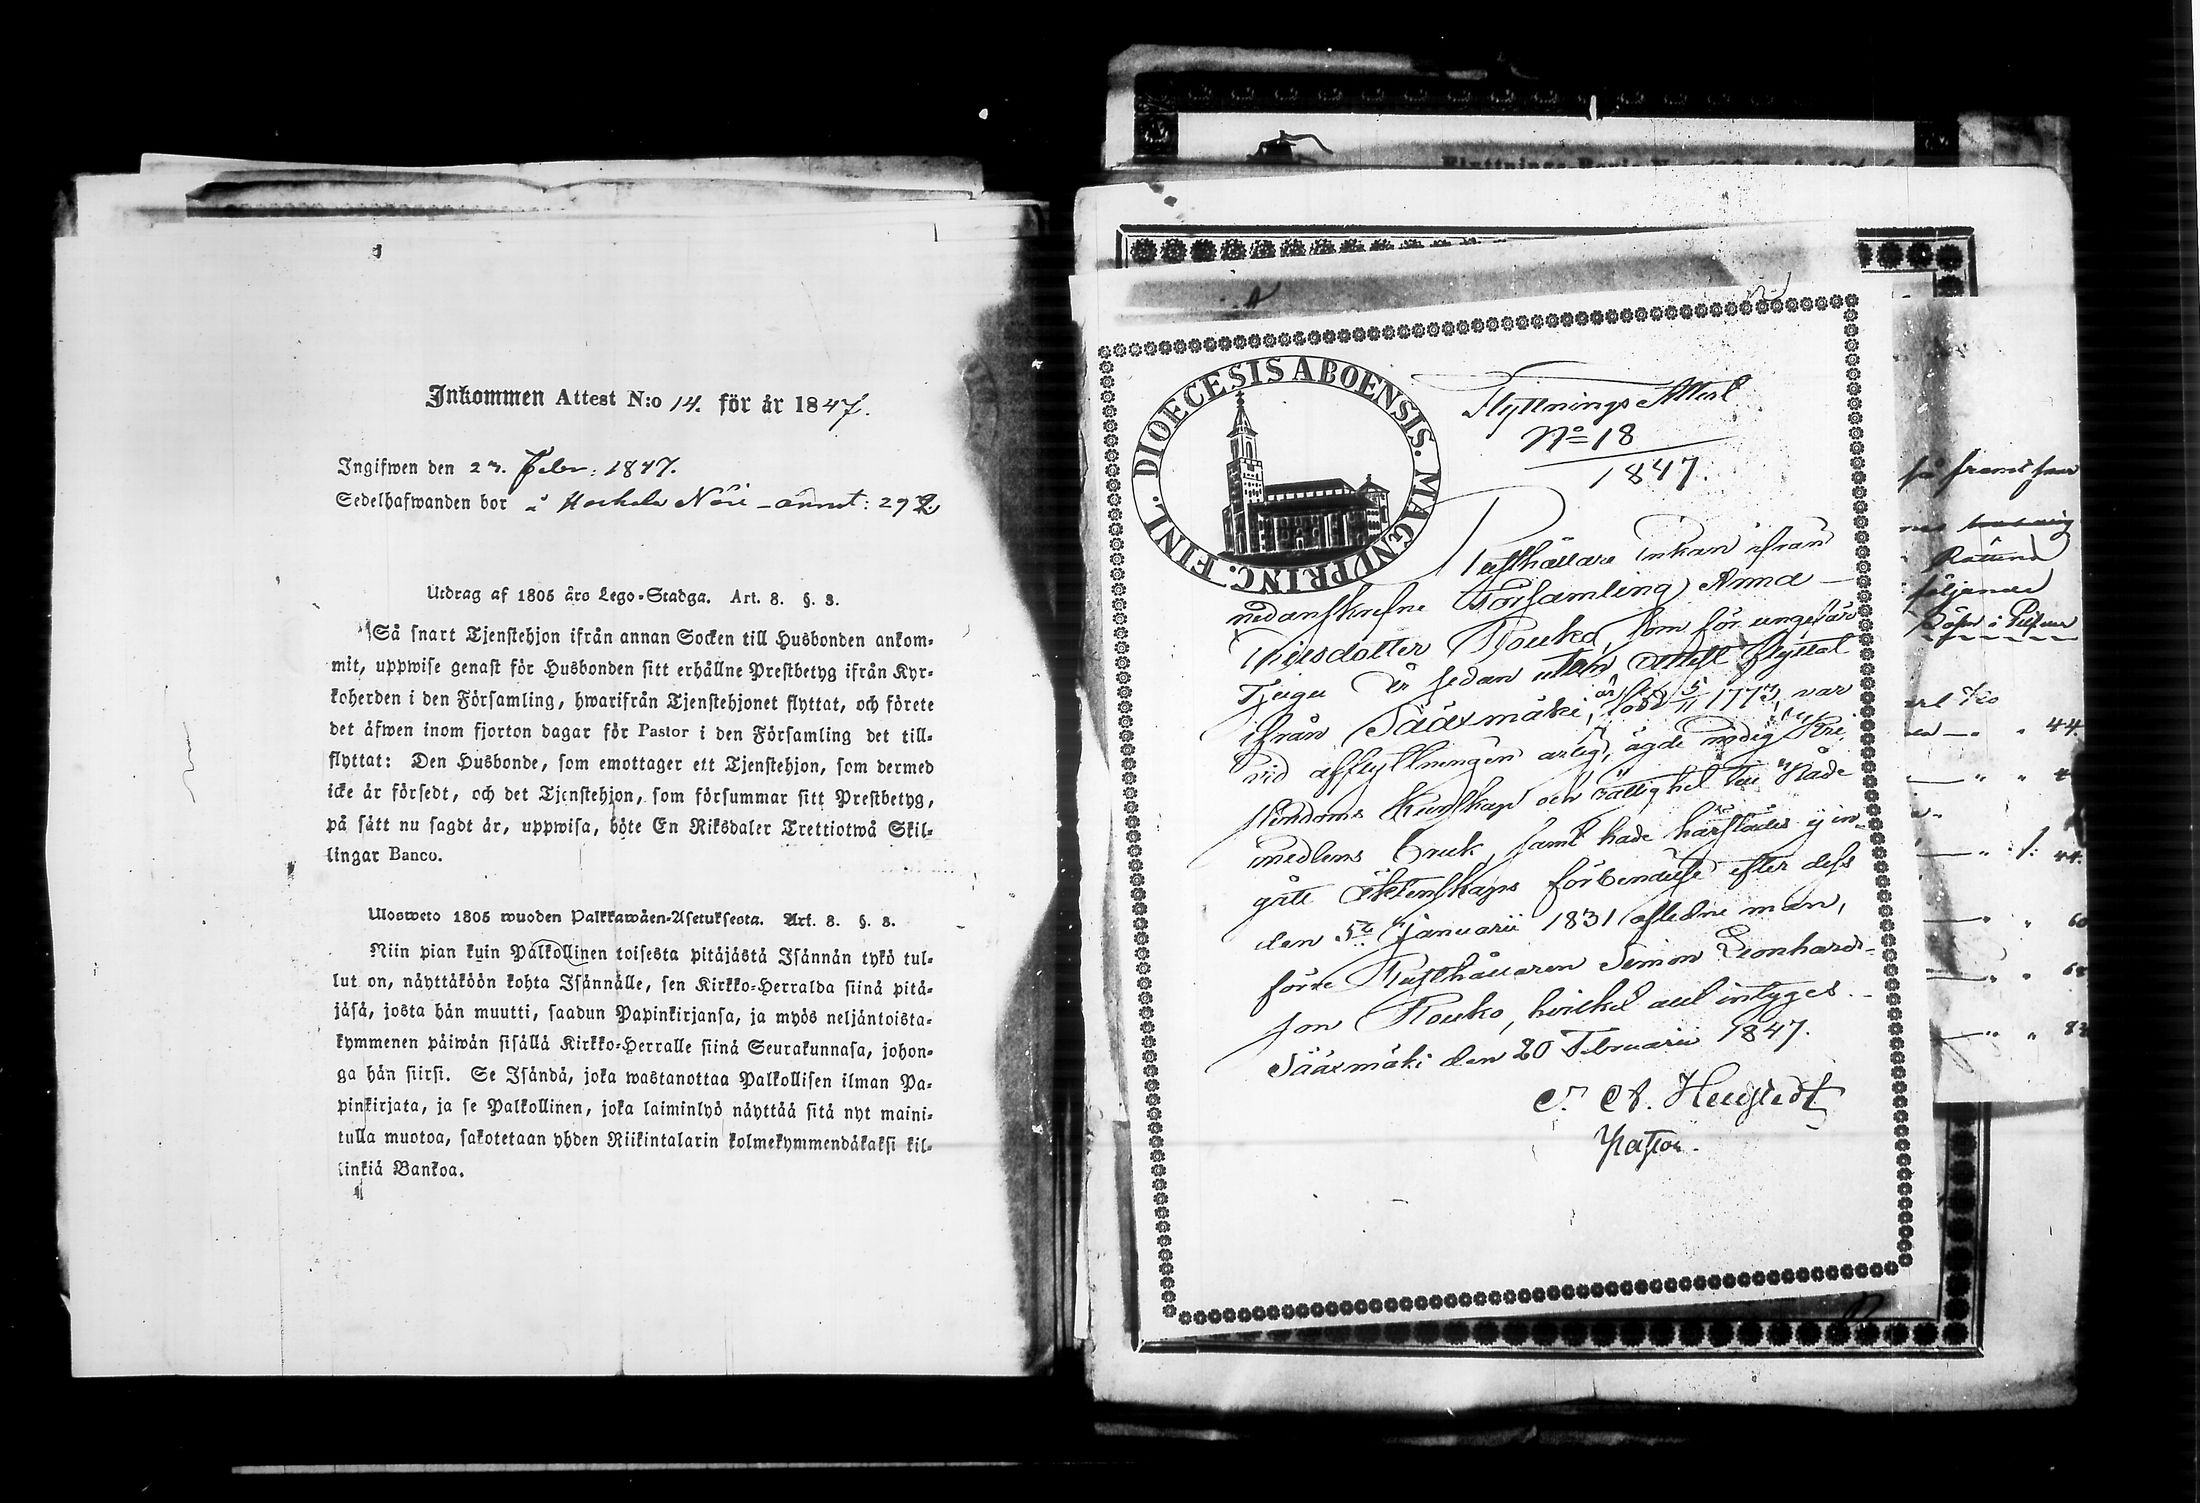 Inkommen Attest N:o 14. för år 1847.
Ingifwen den 23. Febr: 1847.
Sedelhafwanden bor i
Utdrag af 1805 års Lego-Stadga. Art. 8. §. 3.
Så snart Tjenstehjon ifrån annan Socken till Husbonden ankom-
mit, uppwise genast för Husbonden sitt erhållne Prestbetyg ifrån Kyr-
koherden i den Församling, hwarifrån Tjenstehjonet flyttat, och förete
det äfwen inom fjorton dagar för Pastor i den Församling det till-
flyttat: Den Husbonde, som emottager ett Tjenstehjon, som dermed
icke är försedt, och det Tjenstehjon, som försummar sitt Prestbetyg,
på sätt nu sagdt är, uppwisa, böte En Riksdaler Trettiotwå Skil-
lingar Banco.
Ulosweto 1805 wuoden Palkkawäen-Asetuksesta. Art. 8. §. 3.
Niin pian kuin Palkollinen toisesta pitäjästä Isännän tykö tul-
lut on, näyttäköön kohta Isännälle, sen Kirkko-Herralda siinä pitä-
jäsä, josta hän muutti, saadun Papinkirjansa, ja myös neljäntoista-
kymmenen päiwän sisällä Kirkko-Herralle siinä Seurakunnasa, johon-
ga hän siirsi. Se Isändä, joka wastanottaa Palkollisen ilman Pa-
pinkirjata, ja se Palkollinen, joka laiminlyö näyttää sitä nyt maini-
tulla muotoa, sakotetaan yhden Riikintalarin kolmekymmendäkaksi kil-
linkiä Bankoa.
DIOECESIS ABOENSIS. MAGNI PRINC. FINL.
Flyttnings Attest
No 18
1847.
Rusthållare Enkan ifrån
nedanskrefne Församling Anna
Nilsdotter Rouko, som för ungefär
Tjugu år sedan utan Attest flyttat
ifrån Sääxmäki, är född 5/11 1773, var
vid afflyttningen ärlig, ägde nödig Kri-
stendoms Kunskap och rättighet till Nåde
medlens bruk, samt hade härstädes ej in-
gått Äktenskaps förbindelse efter dess
den 5te Januarii 1831 afledne man,
förre Rusthållaren Simon Leonhards-
son Rouko, hvilket att intyges.
Sääxmäki den 20 Februarii 1847.
Pastor.
följande
44.
44.
60